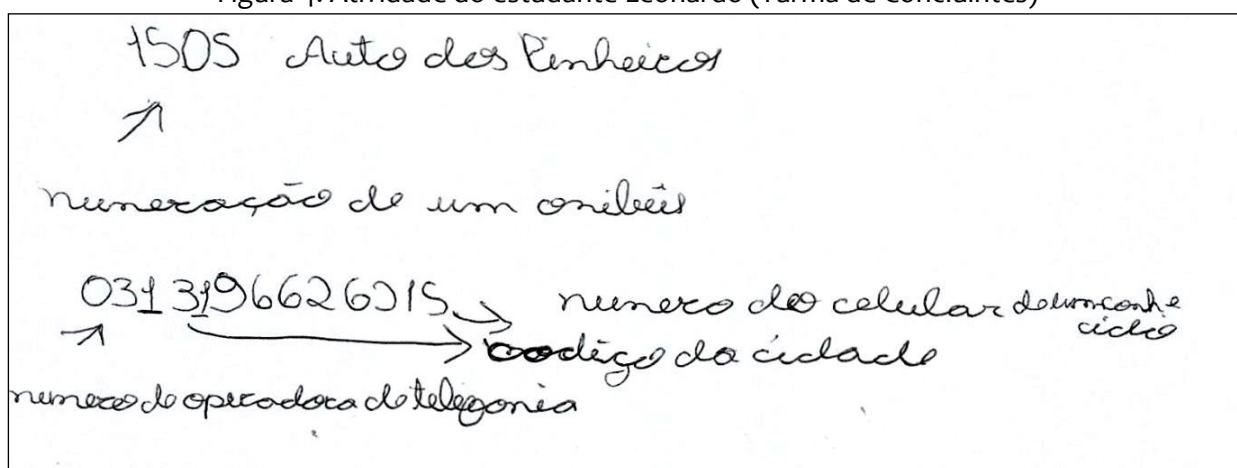 Figura 4: Atividade do estudante Leonardo (Turma de Concluintes)
1505 Auto dos Pinheiros
numeração de um onibûs
0313196626915 numero do celular de um conhe
cido
codigo da cidade
numero de operadora de telefonia